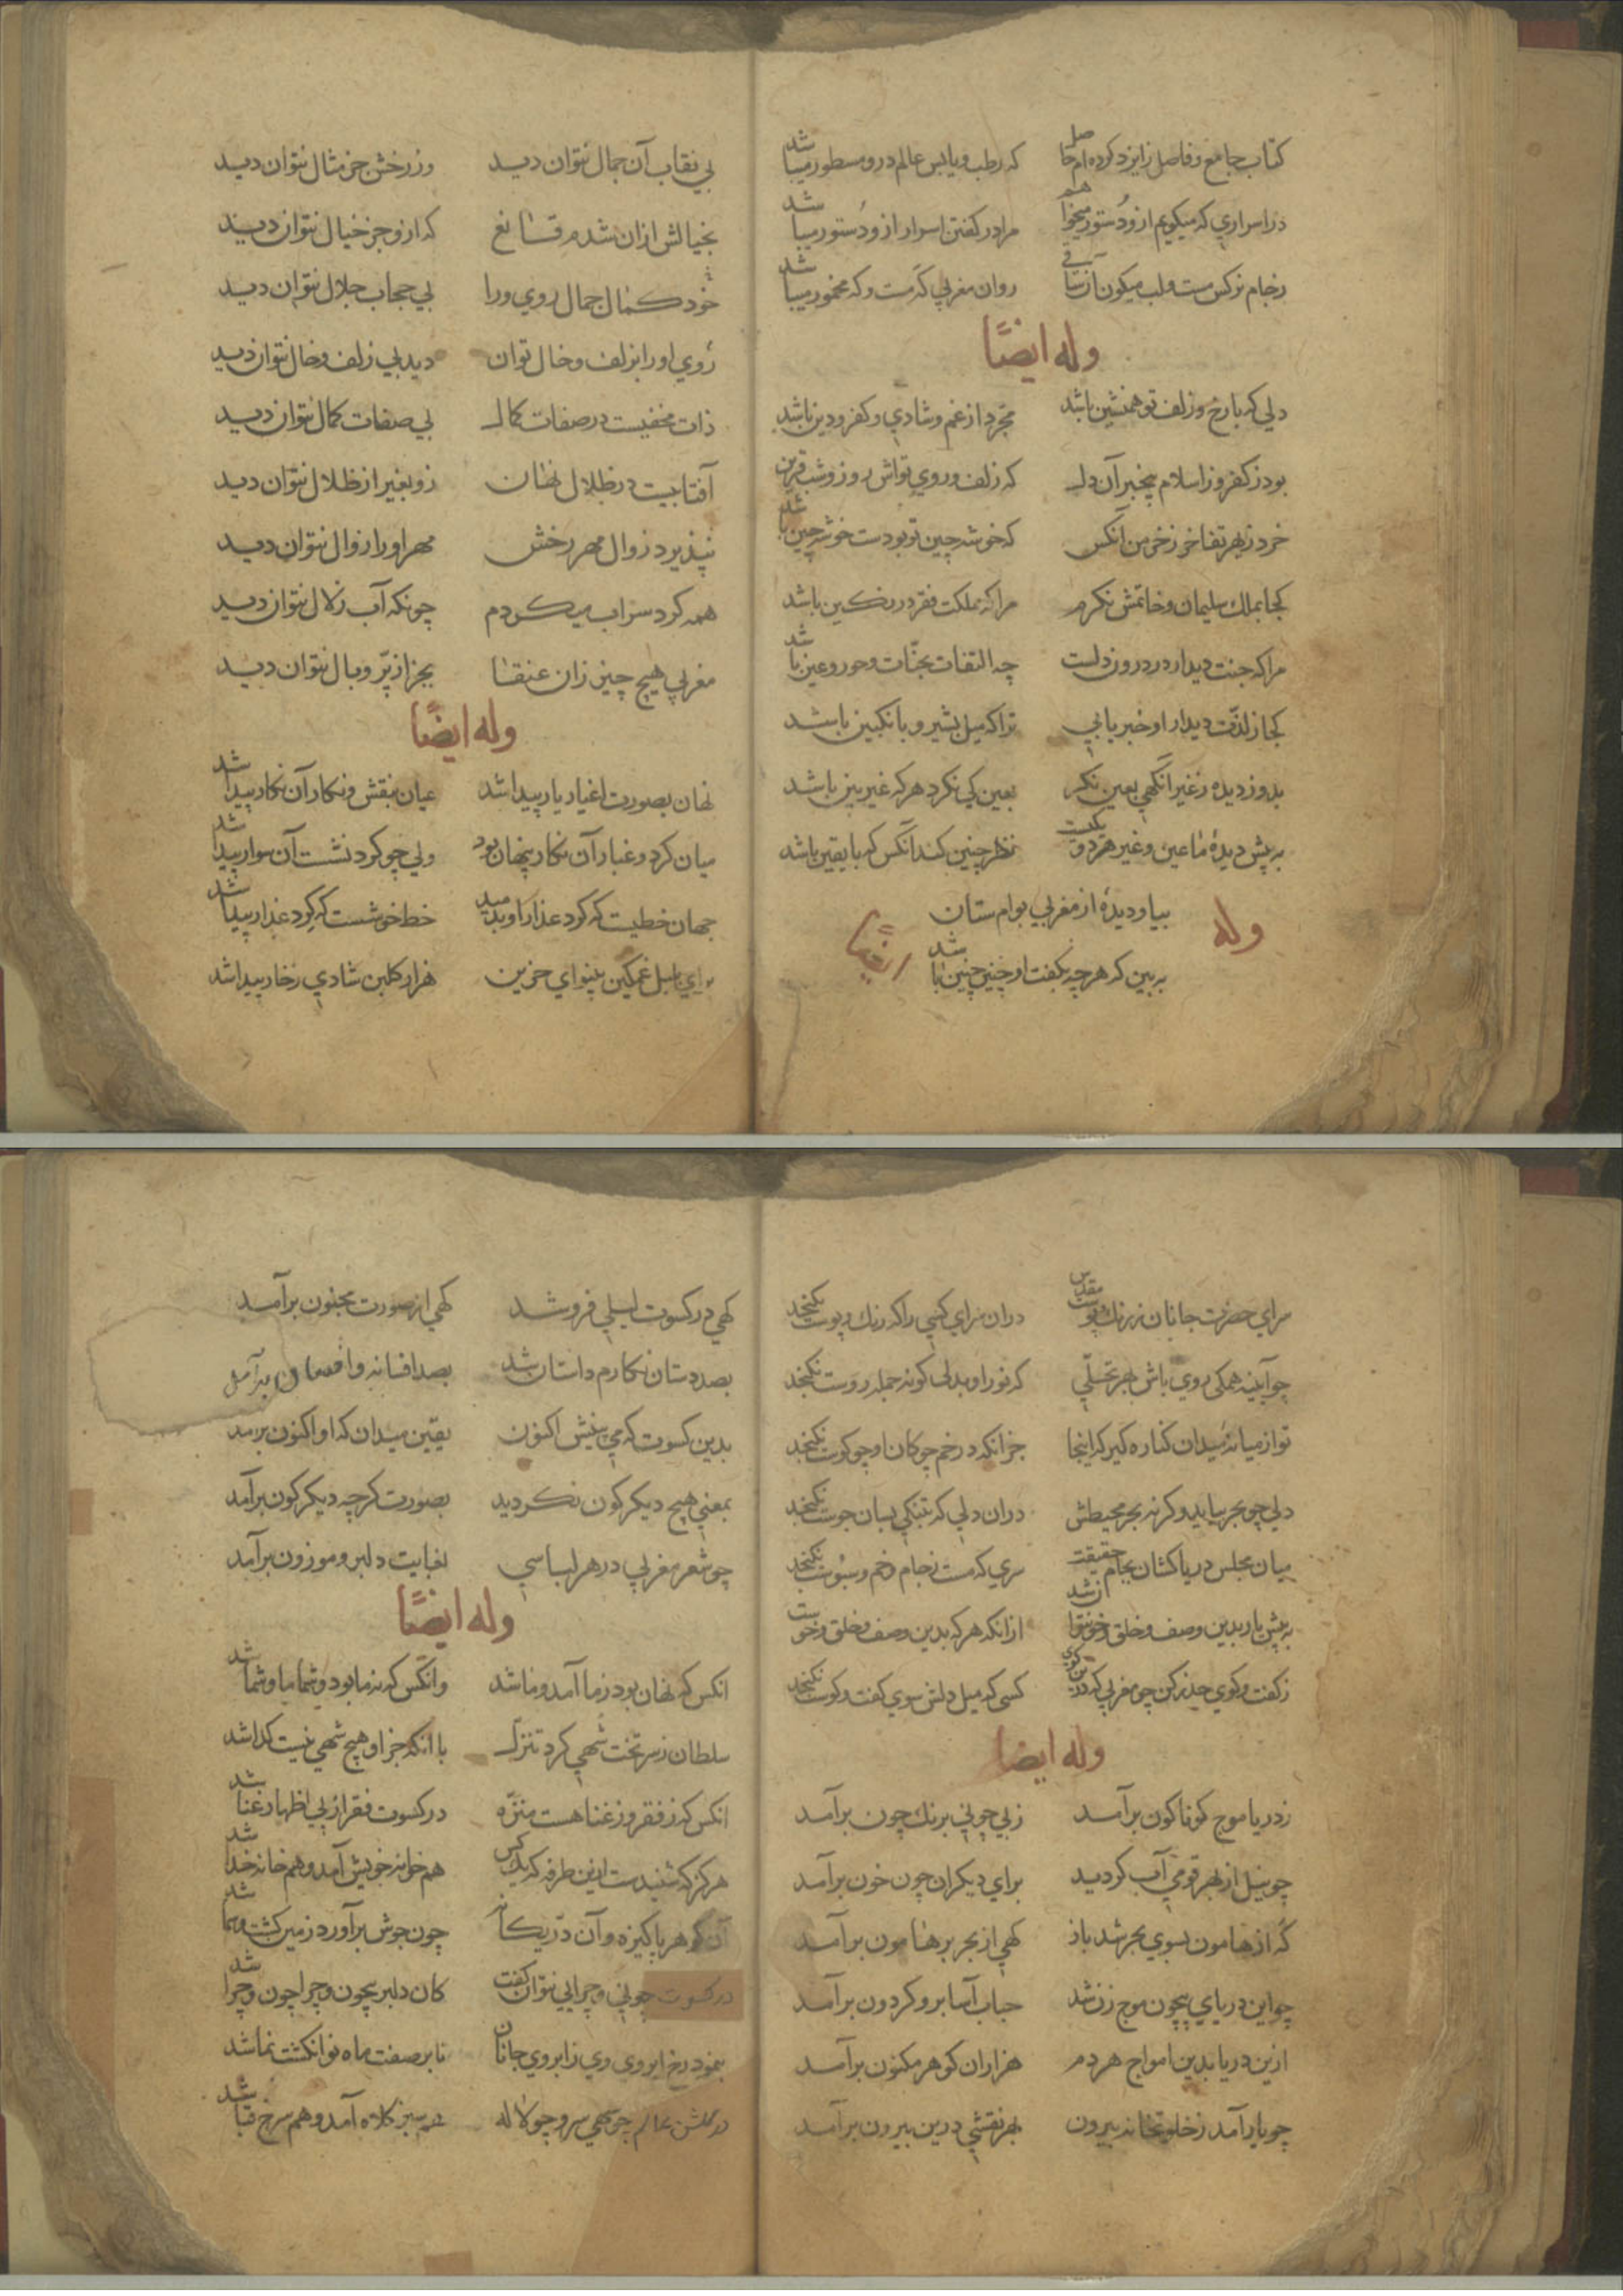 کتاب جامع و فاصل ز ایزد کرده‌ام حاصل که رطب و یابس عالم درو مسطور میباشد
در اسراری که میکویم ازو دستور میخواهم مرا در کفتن اسرار ازو دستور میباشد
ز جام نرکس مست و لب میکون آن ساقی روان مغربی که مست و که مخمور میباشد
وله ایضًا
دلی که با رخ و زلف تو همنشین باشد مجرد از غم و شادی و کفر و دین باشد
بود ز کفر و ز اسلام بیخبر آن دل که زلف و روی تواش روز و شب قرین
خرد ز بهر تفاخر ز خرمن آنکس که خوشه چین تو بودست خوشه چین باشد
کجا بملک سلیمان و خاتمش نکرم مرا که مملکت فقر در نکین باشد
مرا که جنت دیدار در درون دلست چه التفات بجنّات و حور و عین باشد
کجا ز لذّت دیدار او خبر یابی ترا که میل بشیر و بانکبین باشد
بدوز دیده ز غیر آنکهی بعین نکر بعین کی نکرد هر که غیربین باشد
به پیش دیدهٔ ما عین و غیر هر دو یکیست نظر چنین کند آنکس که با یقین باشد
بیا و دیده از مغربی بوام ستان
وله ایضًا
به بین که هرچه بکفت او چنین چنین باشد
بی نقاب آن جمال نتوان دید وز رخش جز مثال نتوان دید
بخیالش ازان شدم قانع که ازو جز خیال نتوان دید
خود کمال جمال روی ورا بی حجاب جلال نتوان دید
روی او را بزلف و خال توان دید بی زلف و خال نتوان دید
ذات مخفیست در صفات کمال بی صفات کمال نتوان دید
آفتابیست در ظلال نهان زو بغیر از ظلال نتوان دید
نپذیرد زوال مهر رخش مهر او را زوال نتوان دید
همه کرد سراب میکردم چونکه آب زلال نتوان دید
مغربی هیچ چیز زان عنقا بجز از پرّ و بال نتوان دید
وله ایضًا
نهان بصورت اغیار یار پیدا شد عیان بنقش و نکار آن نکار پیدا شد
میان کرد و غبار آن نکار پنهان بود ولی چو کرد نشست آن سوار پیدا شد
جهان خطیست که کرد عذار او بدمید خط خوشست که کرد عذار پیدا شد
برای بلبل غمکین بینوای حزین هزار کلبن شادی ز خار پیدا شد
سرای حضرت جانان ز رنک و پوست مقدس دران سرای کسی را که رنک و پوست نکنجد
چو آیینه همکی روی باش بهر تجلّی که نور او بدلی کو نه جمله روست نکنجد
تو از میانهٔ میدان کناره کیر که اینجا جز آنکه در خم چوکان او چو کوست نکنجد
دلی چو بحر بیاید وکرنه بحر محیطش دران دلی که تنکی بسان جوست نکنجد
میان مجلس دریاکشان بجام حقیقت سری که مست ز جام و خم و سبوست نکنجد
به پیش یار بدین وصف و خلق و خو نتوان شد ازانکه هر که بدین وصف و خلق و خوست
ز کفت و کوی حذر کن چو مغربی که درین کوی کسی که میل دلش سوی کفت و کوست نکنجد
وله ایضا
ز دریا موج کوناکون برآمد ز بی چونی برنک چون برآمد
چو نیل از بهر قومی آب کردید برای دیکران چون خون برآمد
که از هامون بسوی بحر شد باز کهی از بحر بر هامون برآمد
چو این دریای بیچون موج زن شد حباب آسا برو کردون برآمد
ازین دریا بدین امواج هر دم هزاران کوهر مکنون برآمد
چو یار آمد ز خلوتخانه بیرون بهر نقشی درین بیرون برآمد
کهی در کسوت لیلی فرو شد کهی از صورت مجنون برآمد
بصد دستان نکارم داستان شد بصد افسانه و افسون برآمد
بدین کسوت که می بینیش اکنون یقین میدان که او اکنون برآمد
بمعنی هیچ دیکرکون نکردید بصورت کرچه دیکرکون برآمد
چو شعر مغربی در هر لباسی بغایت دلبر و موزون برآمد
وله ایضًا
انکس که نهان بود ز ما آمد و ما شد وانکس که نه ما بود و شما ما و شما شد
سلطان ز سر تخت شهی کرد تنزّل با انکه جز او هیچ شهی نیست کدا شد
انکس که ز فقر و ز غنا هست منزّه در کسوت فقر از پی اظهار غنا شد
هرکز که شنیدست ازین طرفه که یک کس هم خانهٔ خویش آمد و هم خانه خدا شد
آن کوهر پاکیزه و آن درّ یکانه چون جوش برآورد زمین کشت و سما شد
در کسوت چونی و چرایی نتوان کفت کان دلبر بیچون و چرا چون و چرا شد
بنمود رخ ابروی وی از ابروی جانان تا بر صفت ماه نو انکشت نما شد
در کلشن عالم چو سهی سرو چو لاله هم سبز کلاه آمد و هم سرخ قبا شد